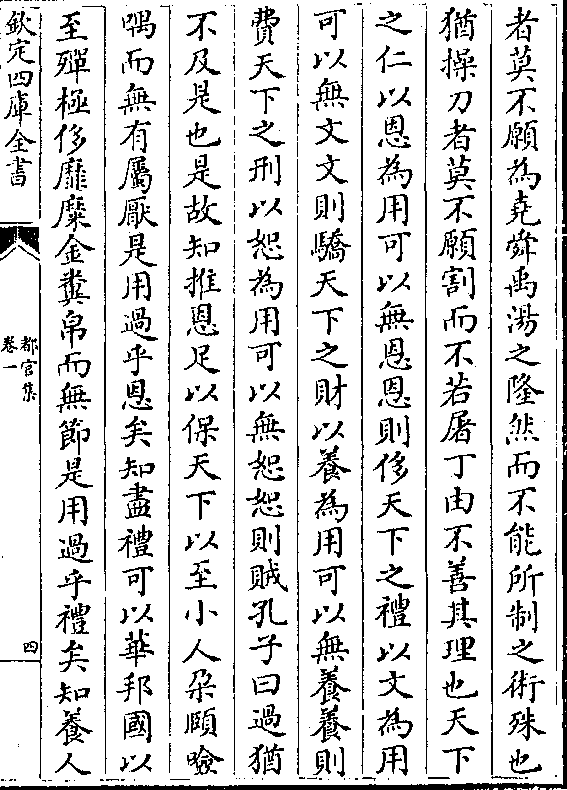 者莫不願為堯舜禹湯之隆然而不能所制之術殊也
猶操刀者莫不願割而不若屠丁由不善其理也天下
之仁以恩為用可以無恩恩則侈天下之禮以文為用
可以無文文則驕天下之財以養為用可以無養養則
費天下之刑以恕為用可以無恕恕則賊孔子曰過猶
不及是也是故知推恩足以保天下以至小人朶頤噞
喁而無有屬厭是用過乎恩矣知盡禮可以華邦國以
至殫極侈靡糜金糞帛而無節是用過乎禮矣知養人
欽定四庫全書
都官集
卷一
四